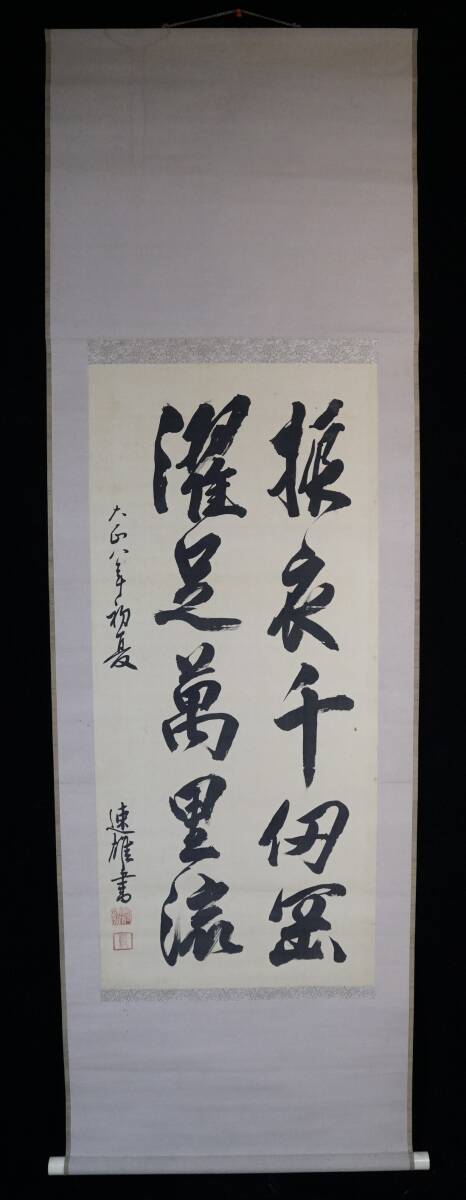 振衣千仞岡
濯足萬里流
大正八年初夏
速雄書